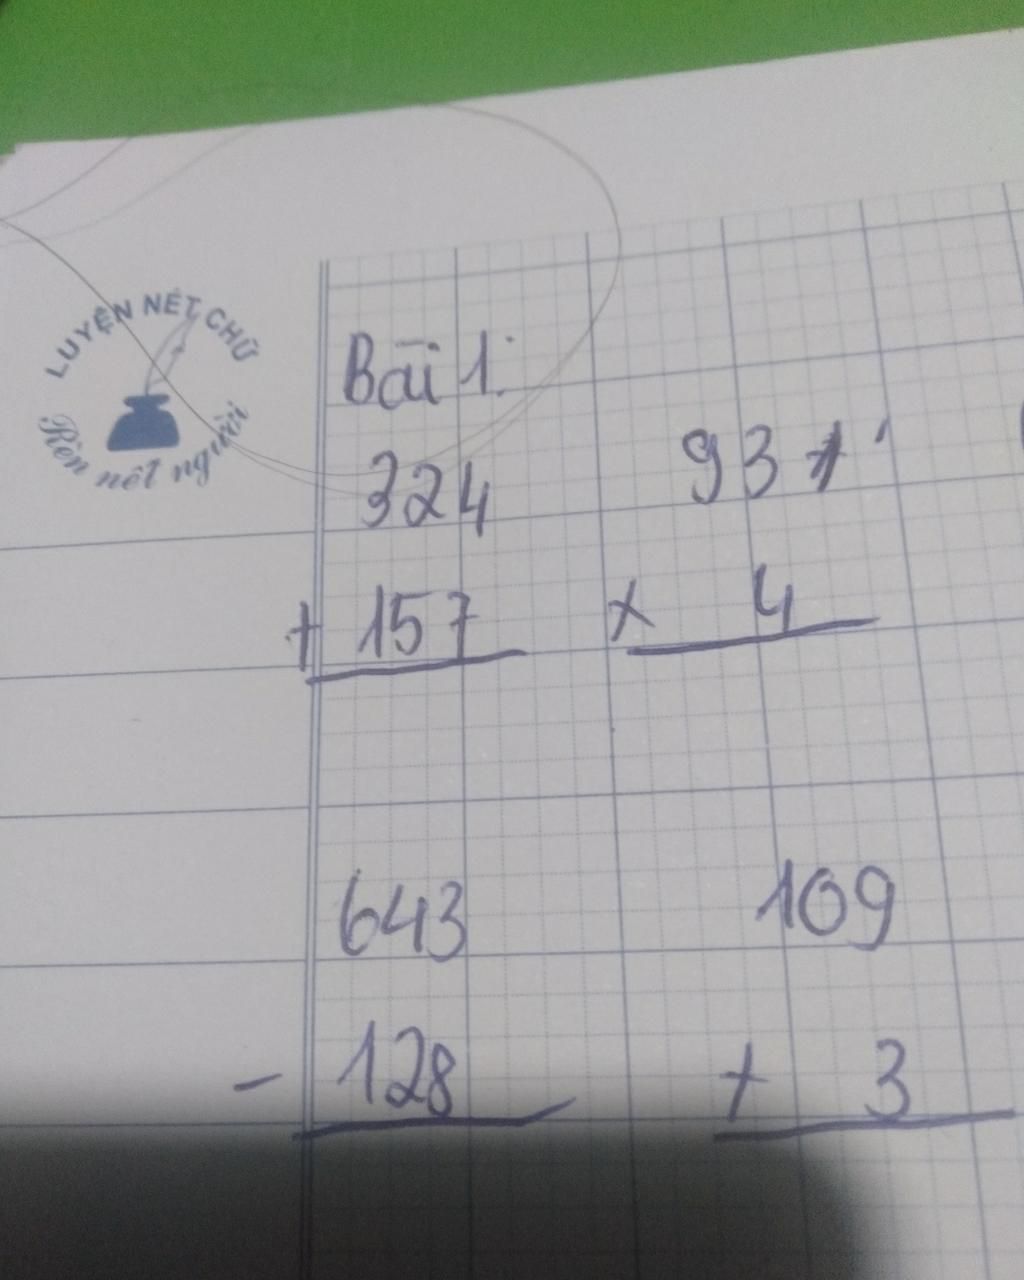 LUYỆN NÉT CHỮ
Rèn nết người
Bài 1:
324
+ 157
93
x 4
643
- 128
109
+ 3